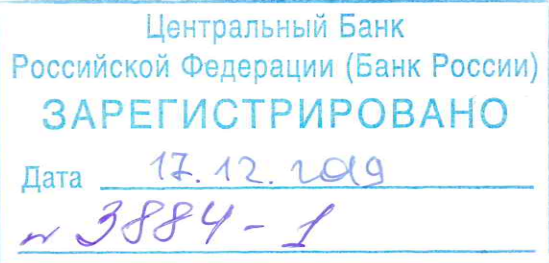 Центральный Банк
Российской Федерации (Банк России)
ЗАРЕГИСТРИРОВАНО
Дата 17.12.2019
№ 3884-1